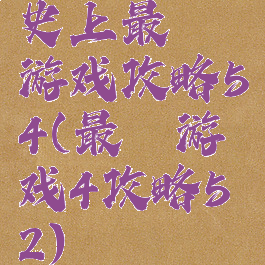 史上最
游戏攻略5
4(最 游
戏4攻略5
2)